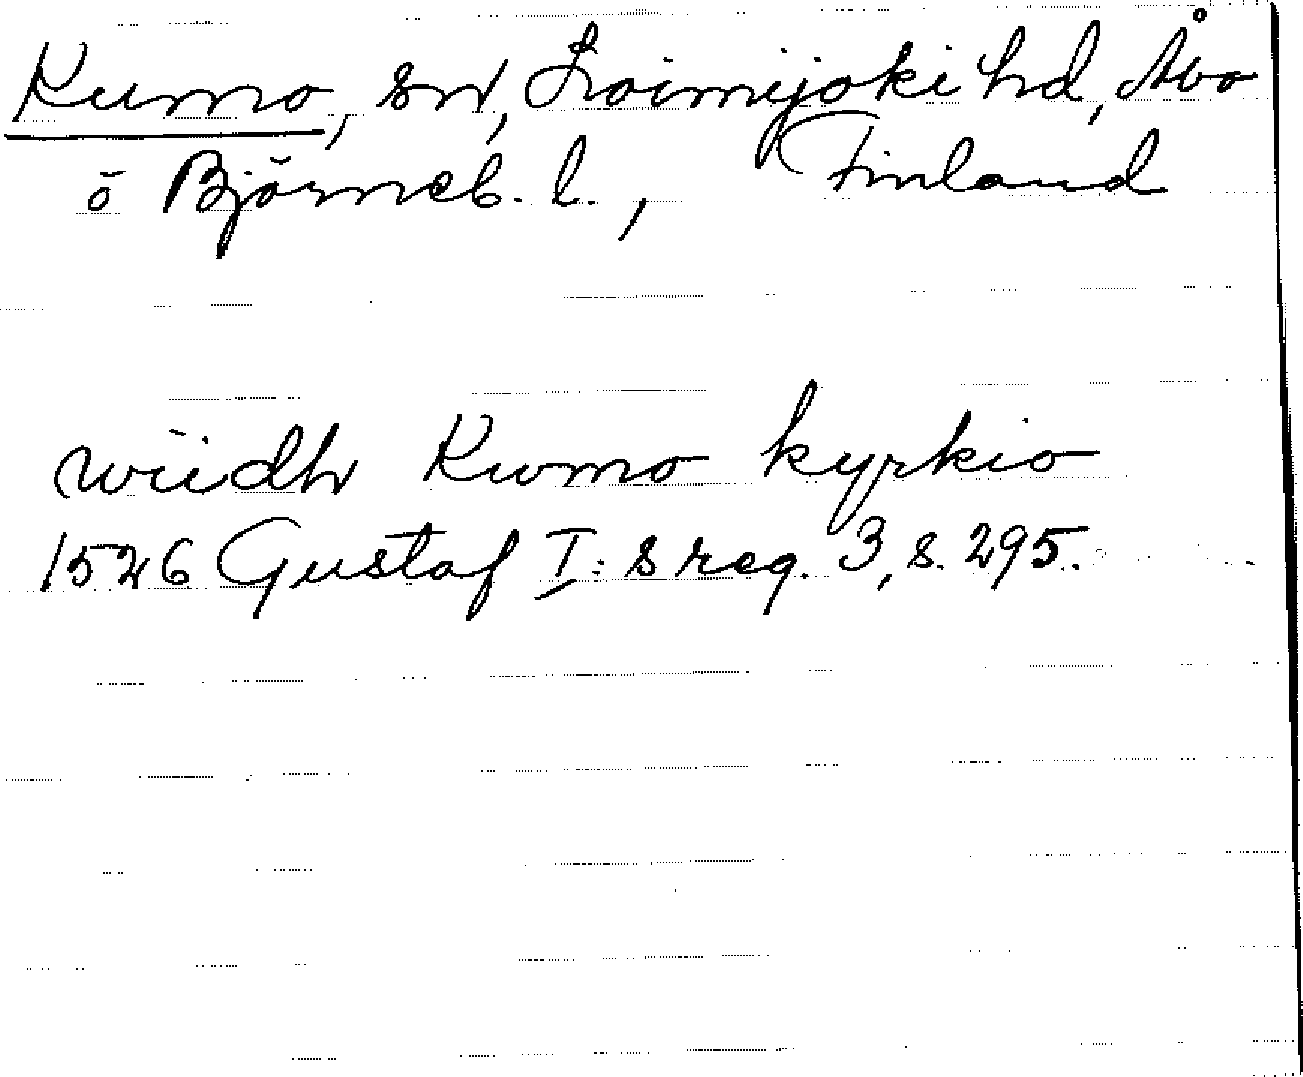 Kumo, sn, Loimijoki hd, Åbo
o Björneb. l., Finland
wiidh Kwmo kyrkio
1526 Gustaf I:s reg. 3, s. 295.